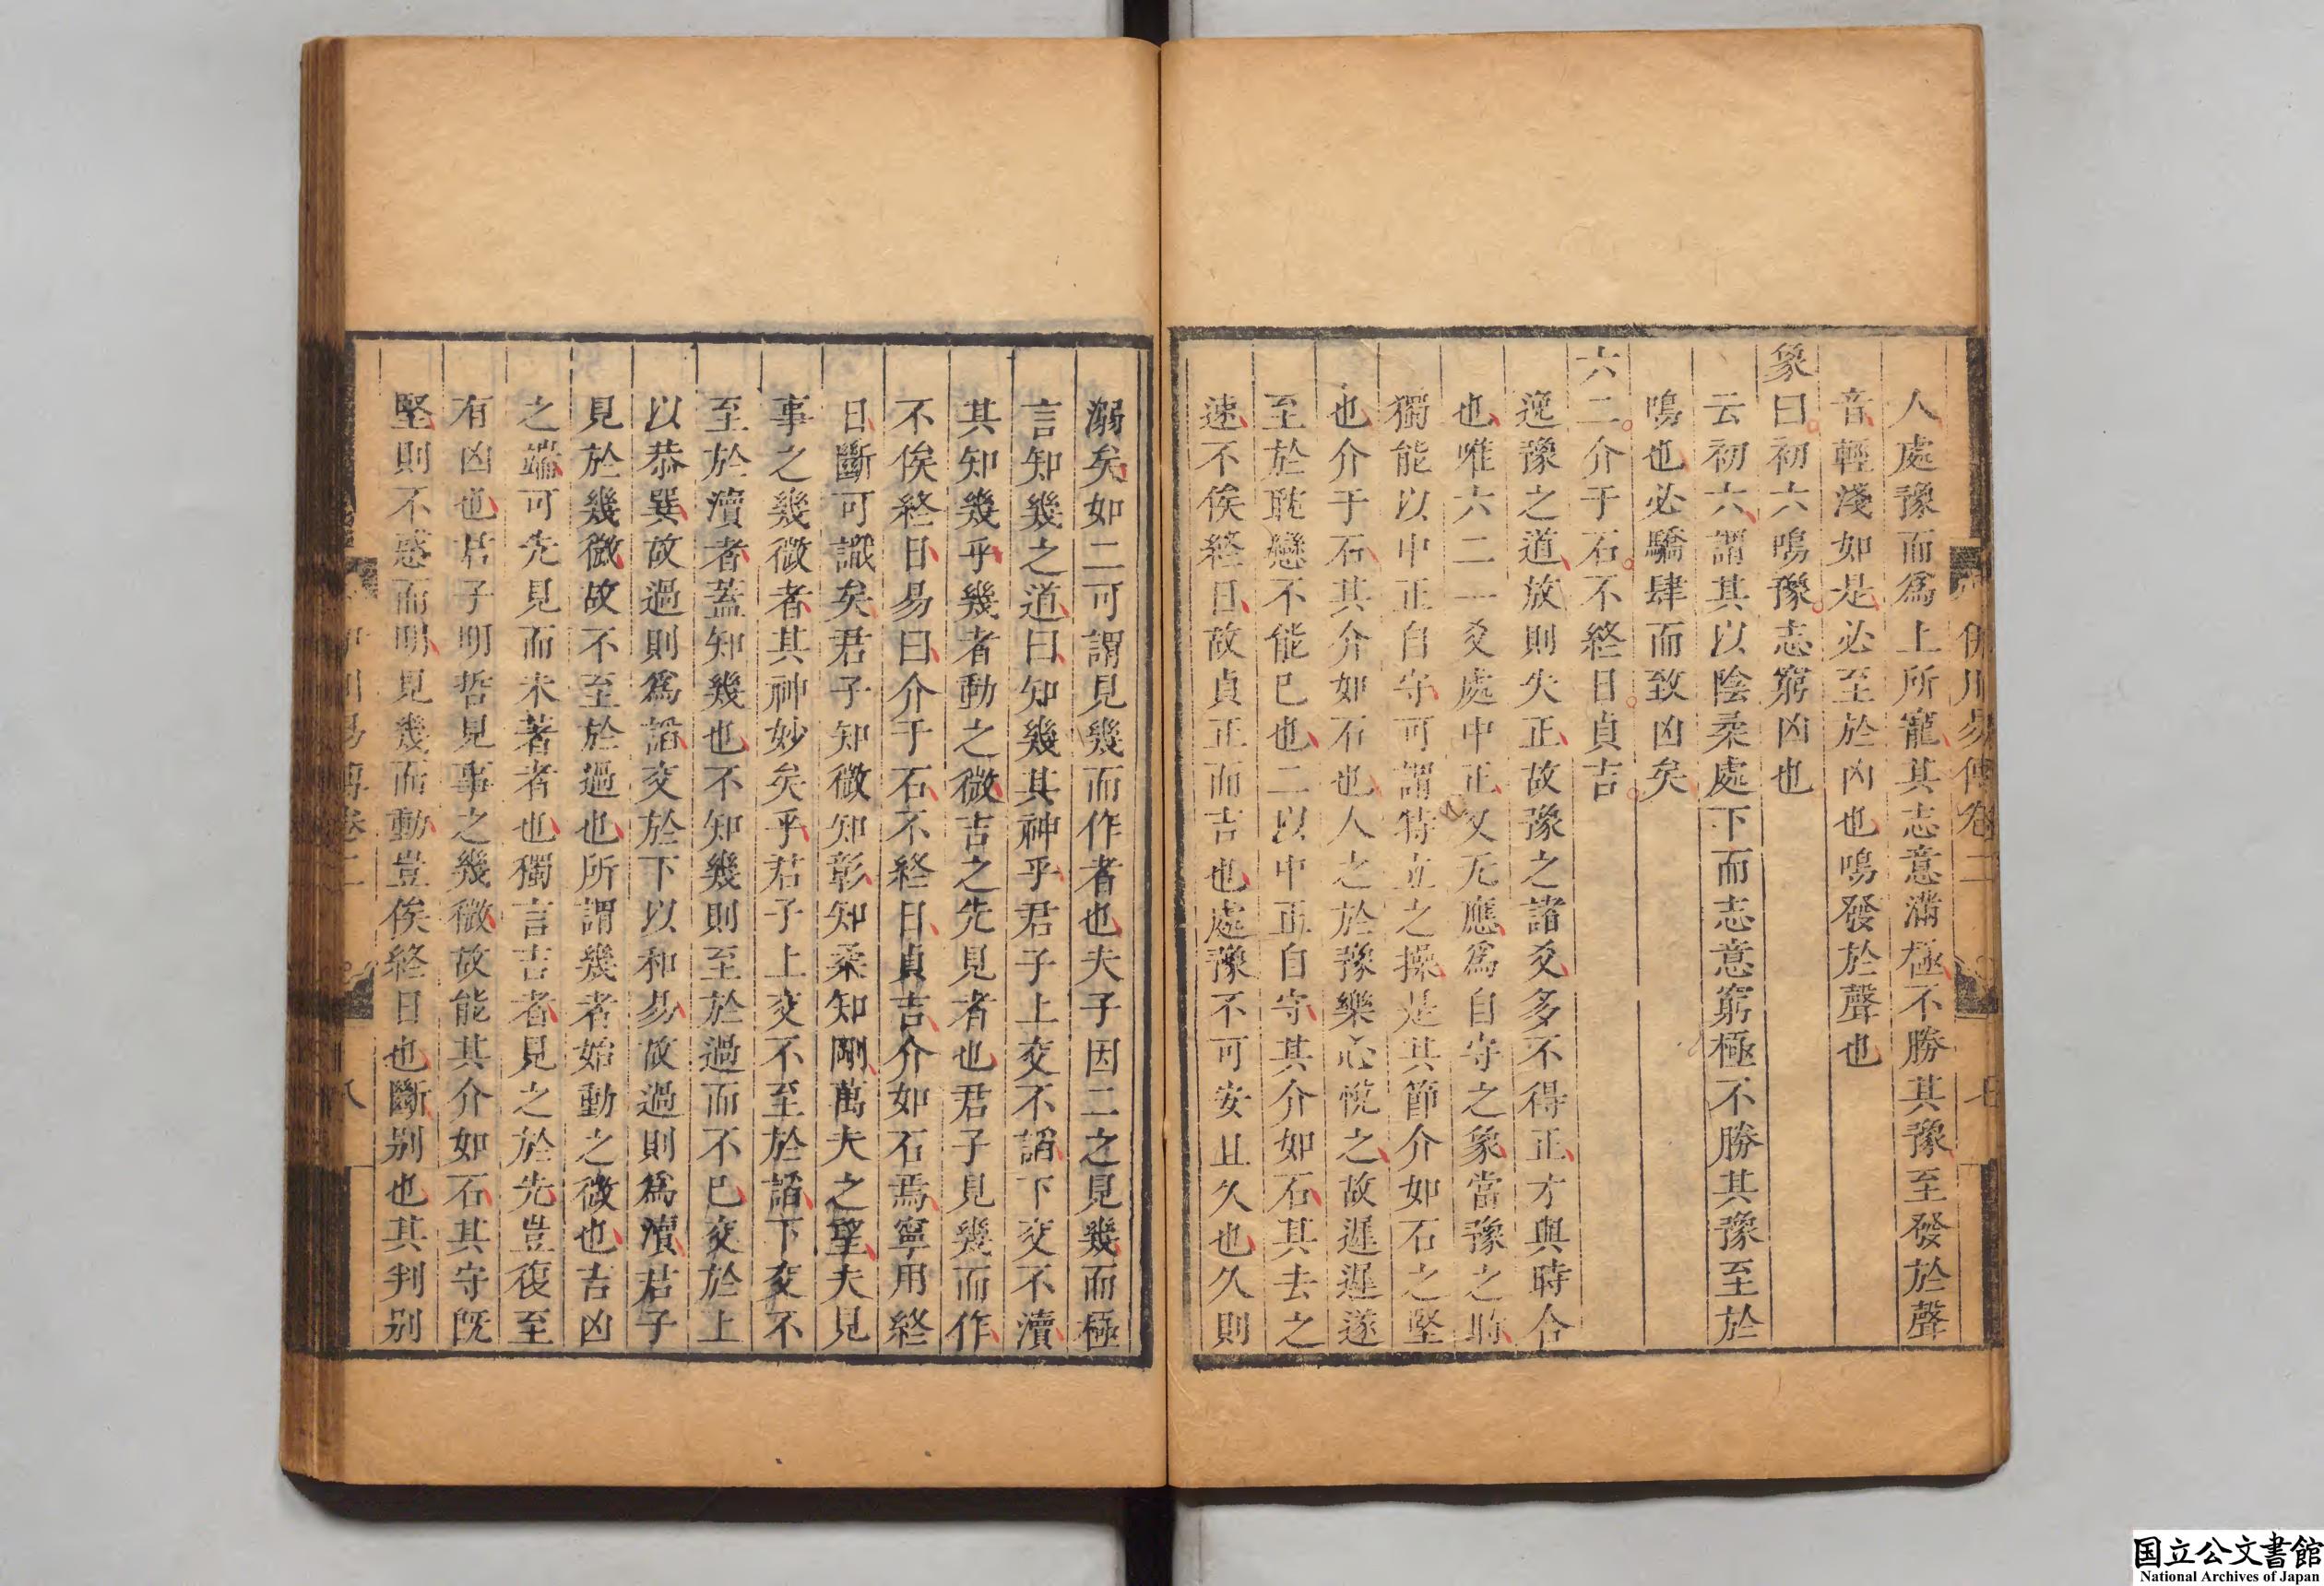 伊川易傳卷二 七
人處豫而爲上所寵其志意滿極不勝其豫至發於聲
音輕淺如是必至於凶也鳴發於聲也
象曰初六鳴豫志窮凶也
云初六謂其以陰柔處下而志意窮極不勝其豫至於
鳴也必驕肆而致凶矣
六二介于石不終日貞吉
逸豫之道放則失正故豫之諸爻多不得正才與時合
也唯六二一爻處中正又无應爲自守之象當豫之時
獨能以中正自守可謂特立之操是其節介如石之堅
也介于石其介如石也人之於豫樂心悅之故遲遲遂
至於耽戀不能已也二以中正自守其介如石其去之
速不俟終日故貞正而吉也處豫不可安且久也久則
溺矣如二可謂見幾而作者也夫子因二之見幾而極
言知幾之道曰知幾其神乎君子上交不諂下交不瀆
其知幾乎幾者動之微吉之先見者也君子見幾而作
不俟終日易曰介于石不終日貞吉介如石焉寧用終
日斷可識矣君子知微知彰知柔知剛萬夫之望夫見
事之幾微者其神妙矣乎君子上交不至於諂下交不
至於瀆者蓋知幾也不知幾則至於過而不已交於上
以恭巽故過則爲諂交於下以和易故過則爲瀆君子
見於幾微故不至於過也所謂幾者始動之微也吉凶
之端可先見而未著者也獨言吉者見之於先豈復至
有凶也君子明哲見事之幾微故能其介如石其守旣
堅則不惑而明見幾而動豈俟終日也斷别也其判别
伊川易傳卷二 八
国立公文書館
National Archives of Japan